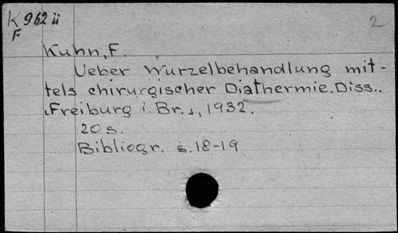 K 962 ü
F
2
Kuhn, F.
Ueber Wurzelbehandlung mit-
tels chirurgischer Diathermie. Diss..
Freiburg i. Br., 1932.
20 s.
Bibliogr. s. 18-19